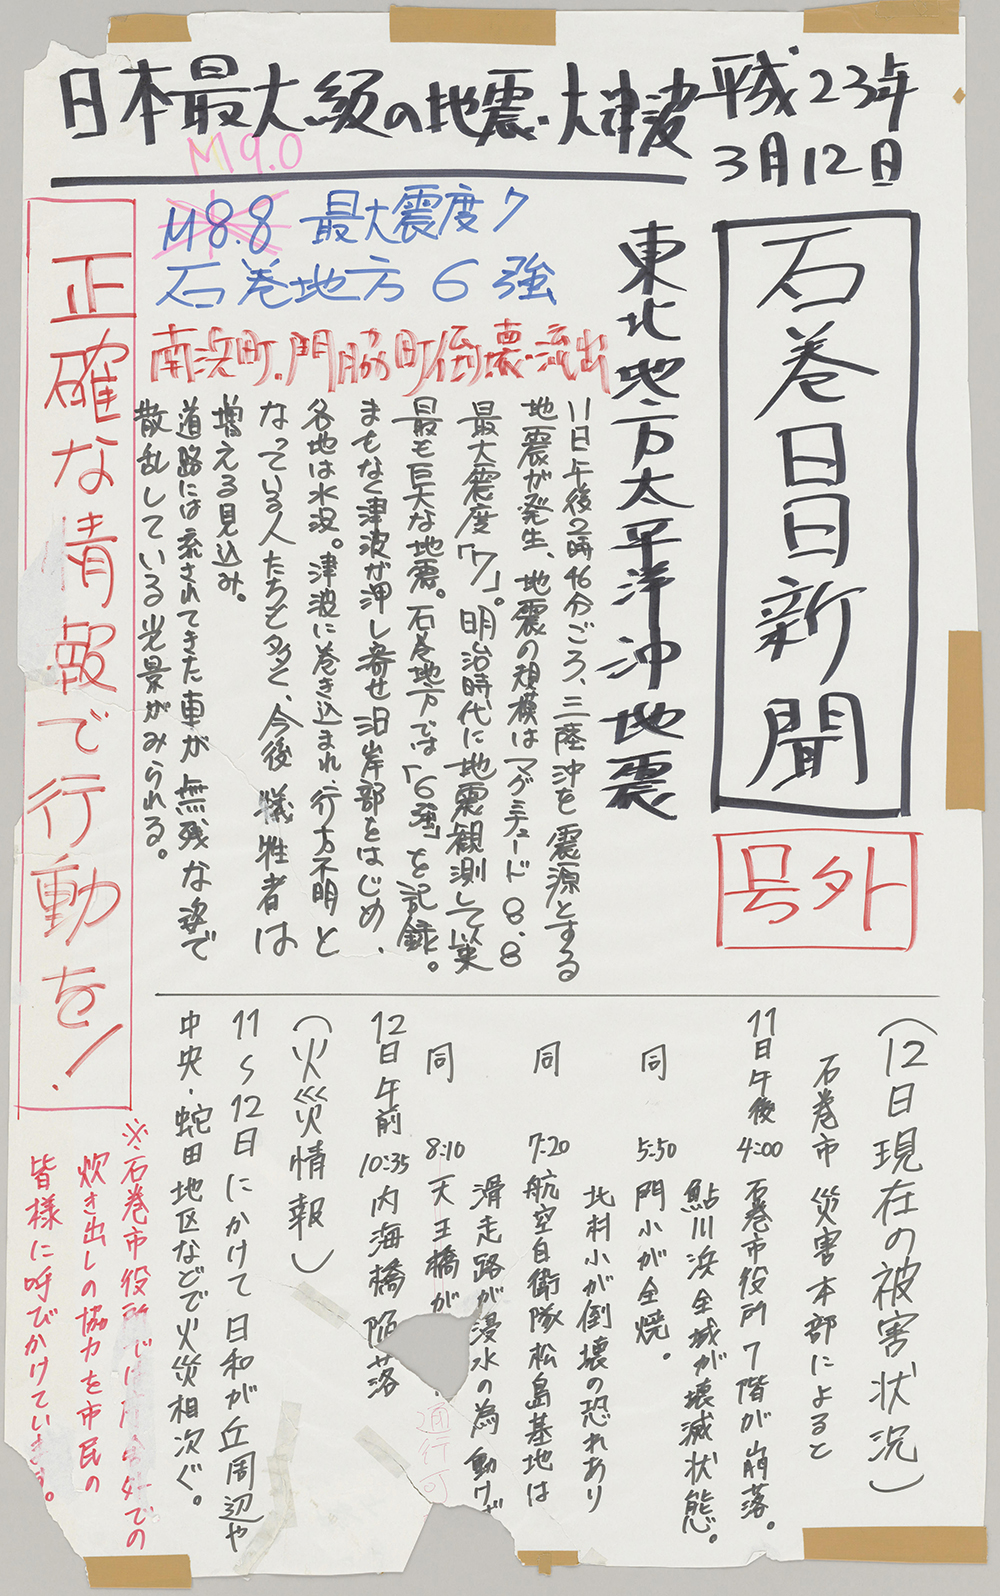 日本最大級の地震・大津波
平成23年
3月12日
石巻日日新聞
号外
東北地方太平洋沖地震
M9.0
M8.8 最大震度7
石巻地方 6強
南浜町、門脇町倒壊・流出
11日午後2時46分ごろ、三陸沖を震源とする
地震が発生、地震の規模はマグニチュード8.8
最大震度「7」。明治時代に地震観測して以来
最も巨大な地震。石巻地方では「6強」を記録。
まもなく津波が押し寄せ沿岸部をはじめ、
各地は水没。津波に巻き込まれ、行方不明と
なっている人たちも多く、今後犠牲者は
増える見込み。
道路には流されてきた車が無残な姿で
散乱している光景がみられる。
正確な情報で行動を!
(12日現在の被害状況)
石巻市災害本部によると
11日午後4:00 石巻市役所7階が崩落。
鮎川浜全域が壊滅状態。
同 5:50 門小が全焼。
北村小が倒壊の恐れあり
同 7:20 航空自衛隊松島基地は
滑走路が浸水の為動けず
同 8:10 天王橋が
通行可
12日午前10:35 内海橋陥落
(火災情報)
11〜12日にかけて日和が丘周辺や
中央・蛇田地区などで火災相次ぐ。
※石巻市役所では庁舎外での
炊き出しの協力を市民の
皆様に呼びかけています。